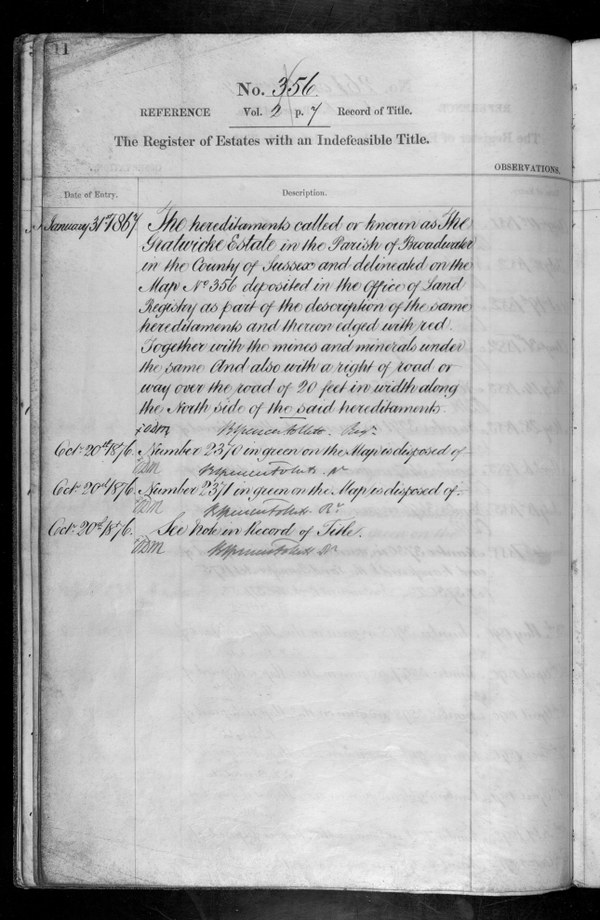 11
No. 356
REFERENCE Vol. 2 p. 7 Record of Title.
The Register of Estates with an Indefeasible Title.
OBSERVATIONS.
Date of Entry. Description.
January 31st 1867. The hereditaments called or known as The
Gratwicke Estate in the Parish of Broadwater
in the County of Sussex and delineated on the
Map No 356 deposited in the Office of Land
Registry as part of the description of the same
hereditaments and thereon edged with red.
Together with the mines and minerals under
the same And also with a right of road or
way over the road of 20 feet in width along
the North side of the said hereditaments.
Regr.
Oct. 20th 1876. Number 2370 in green on the Map is disposed of
Oct. 20th 1876. Number 2371 in green on the Map is disposed of
Oct. 20th 1876. See Note in Record of Title.